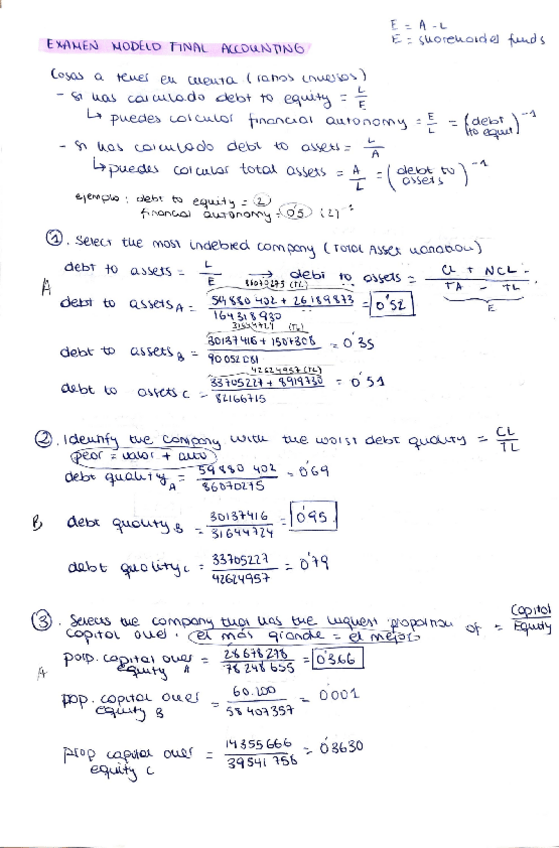 E = A - L
E = shareholder funds
EXAMEN MODELO FINAL ACCOUNTING
Cosas a tener en cuenta (ratios inversos)
- Si has calculado debt to equity = L/E
↳ puedes calcular financial autonomy = E/L = (debt to equit)⁻¹
- Si has calculado debt to assets = L/A
↳ puedes calcular total assets = A/L = (debt to assets)⁻¹
ejemplo: debt to equity = 2
financial autonomy = 0'5 (2)⁻¹
① . Select the most indebted company (Total Asset variation)
debt to assets = L/E → debt to assets = CL + NCL / TA - TL
E
86070275 (TL)
A debt to assets A = 59880 402 + 26189873 / 164318930 = 0'52
31644724 (TL)
debt to assets B = 30137416 + 1507308 / 90052081 = 0'35
42624957 (TL)
debt to assets C = 33705227 + 8919730 / 82166715 = 0'51
② . Identify the company with the worst debt quality = CL/TL
peor = valor + alto
debt quality A = 59880 402 / 86070275 = 0'69
B debt quality B = 30137416 / 31644724 = 0'95
debt quality C = 33705227 / 42624957 = 0'79
③ . Selects the company that has the highest proportion of = Capital/Equity
capital over . el más grande = el mejor
A porp. capital over equity A = 28678278 / 78248655 = 0'366
pop. capital over equity B = 60.100 / 58407357 = 0'001
prop capital over equity C = 14355666 / 39541758 = 0'3630